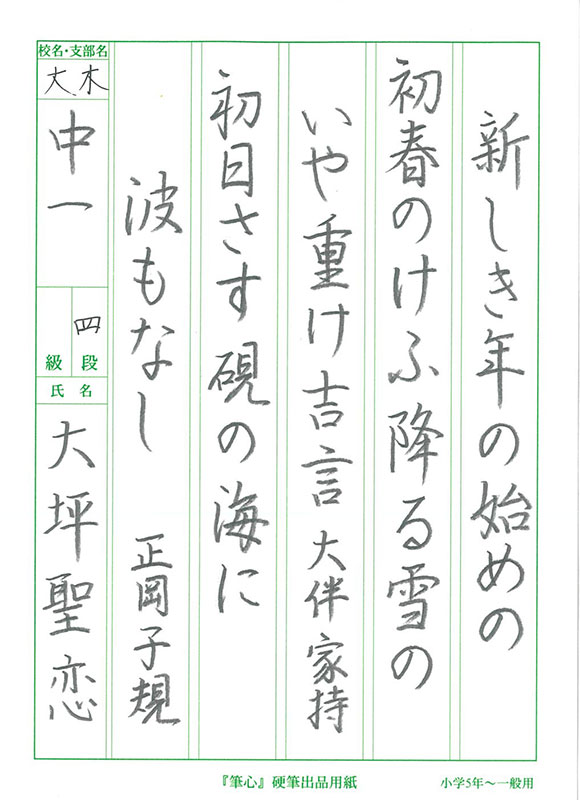 新しき年の始めの
初春のけふ降る雪の
いや重け吉言 大伴家持
初日さす硯の海に
波もなし 正岡子規
校名・支部名
大木
中一
四段
級
氏名
大坪聖恋
『筆心』硬筆出品用紙
小学5年〜一般用